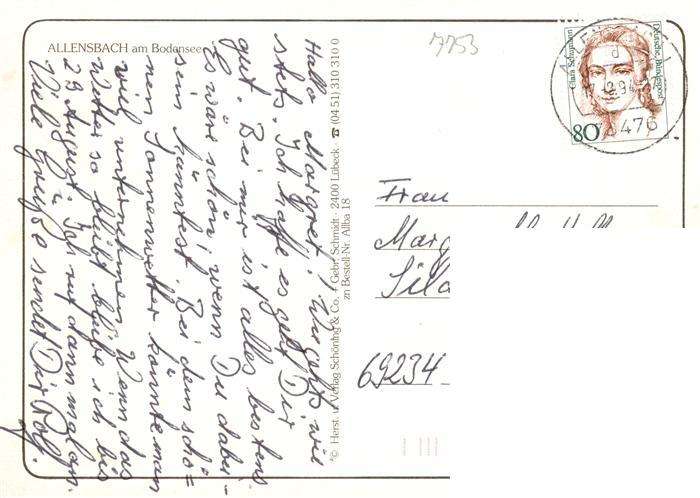 ALLENSBACH am Bodensee
Hallo Margret! Wie geht's wie
stets. Ich hoffe es geht Dir
gut. Bei mir ist alles bestens
Es wäre schön, wenn Du dabei-
sein könntest. Bei dem schö=
nen Sonnenwetter könnte man
viel unternehmen. Wenn das
Wetter so bleibt bleibe ich bis
23 August. Ruf dann mal an.
Viele Grüße sendet Dir Rolf.
© Herst. u. Verlag Schöning & Co. · Gebr. Schmidt · 2400 Lübeck · ☎ (04 51) 310 310 0
zu Bestell-Nr. Allba 18
7753
Clara Schumann
Deutsche Bundespost
80
476
Frau
Marg
Sila
69234